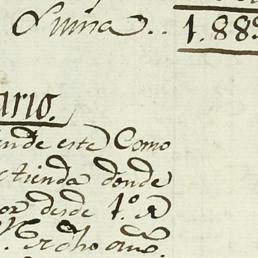 Suma.. 1.88
ario.
ende este Como
tienda donde
or desde 1.º A
dho año.